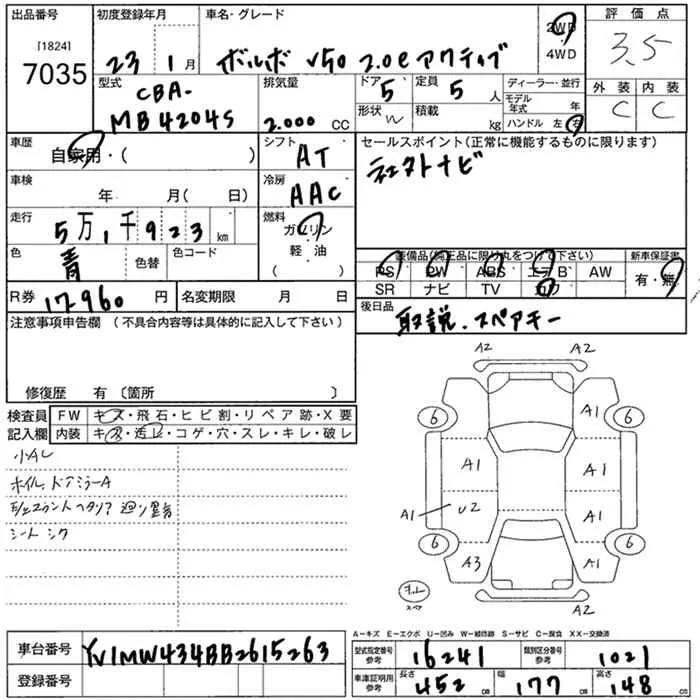 出品番号 初度登録年月 車名・グレード 評価点
[1824]
7035 23 1月 ボルボ V50 2.0e アクティブ 2WD 3.5
4WD
型式 排気量 ドア 定員 ディーラー・並行 外装 内装
CBA- 5 5人 モデル年式 年 C C
MB4204S 2.000CC 形状 W 積載 kg ハンドル 左 右
車歴 シフト セールスポイント(正常に機能するものに限ります)
自家用・( ) AT
車検 冷房 ナビ
年 月( 日) AAC
走行 燃料
5万1千923km ガソリン
色 色替 色コード 軽・油 装備品(純正品に限り丸をつけて下さい) 新車保証書
青 ( ) PS PW ABS エアB AW 有・無
R券 名変期限 月 日 SR ナビ TV カワ
17960円 後日品
注意事項申告欄 (不具合内容等は具体的に記入して下さい) 取説.スペアキー
修復歴 有 〔箇所 〕
検査員 FW キズ・飛石・ヒビ割・リペア跡・X要
記入欄 内装 キズ・汚レ・コゲ・穴・スレ・キレ・破レ
小AL
ホイル、ドアミラーA
シート シワ
A2 A2
6 A1 6
A1 A1
A1 U2 A1
6 A3 A1 6
スペア
A2 A2
A−キズ E−エクボ U−凹み W−補修跡 S−サビ C−腐食 XX−交換済
車台番号 YV1MW434BB2615263
登録番号
型式指定番号 参考 16241 類別区分番号 参考 1021
車庫証明用 参考 長さ 452cm 幅 177cm 高さ 148cm